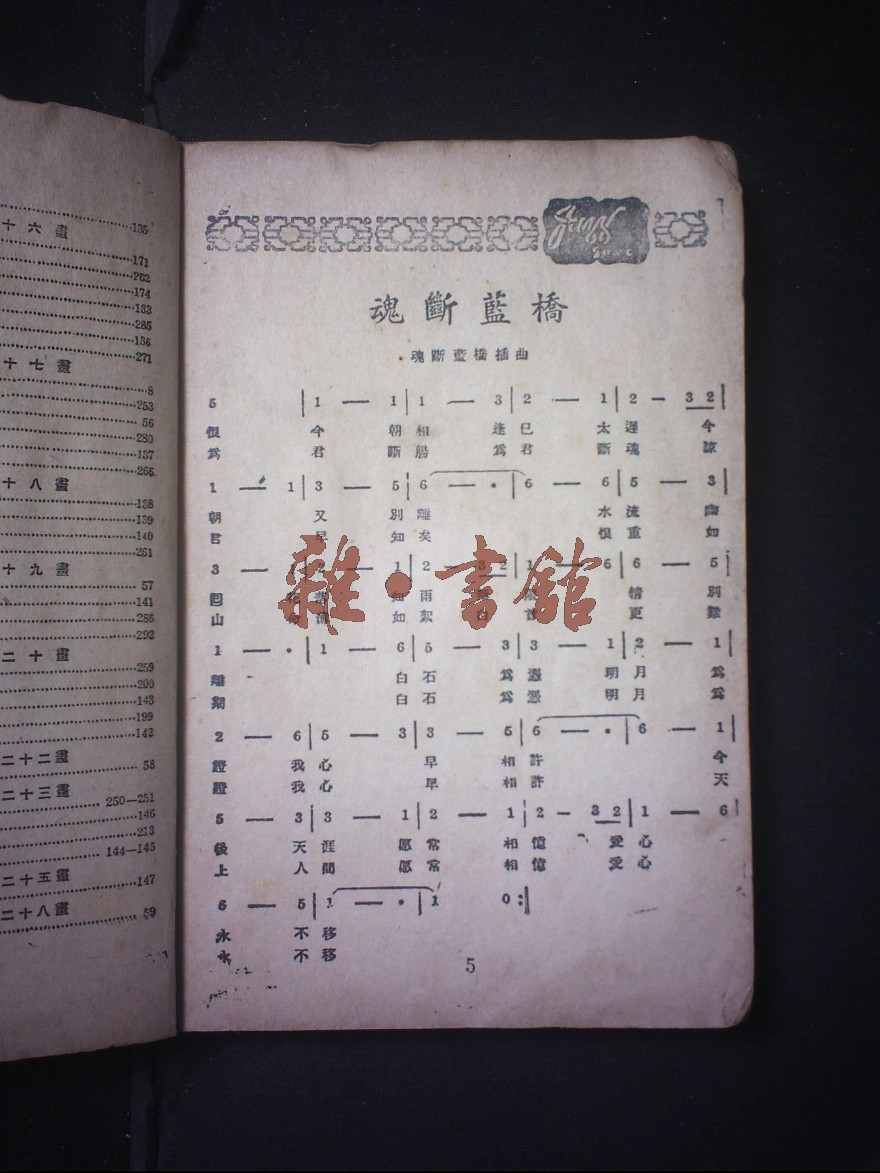 十六畫
135
171
262
174
133
285
136
271
十七畫
8
253
56
280
137
266
十八畫
138
139
140
261
十九畫
57
141
286
292
二十畫
259
200
143
199
142
二十二畫
58
二十三畫
250—251
146
213
144—145
二十五畫
147
二十八畫
59
魂斷藍橋
魂斷藍橋插曲
5 | 1 — 1 | 1 — 3 | 2 — 1 | 2 - 3 2 |
恨 今 朝 相 逢 已 太 遲 今
爲 君 斷 腸 爲 君 斷 魂 諒
1 — 1 | 3 — 5 | 6 — · | 6 — 6 | 5 — 3 |
朝 又 別 離 水 流 幽
君 早 知 矣 恨 重 如
雜·書館
離 白 石 爲 憑 明 月 爲
期 白 石 爲 憑 明 月 爲
1 — · | 1 — 6 | 5 — 3 | 3 — 1 | 2 — 1 |
2 — 6 | 5 — 3 | 3 — 5 | 6 — · | 6 — 1 |
證 我 心 早 相 許 今
證 我 心 早 相 許 天
5 — 3 | 3 — 1 | 2 — 1 | 2 - 3 2 | 1 — 6 |
後 天 涯 愿 常 相 憶 愛 心
上 人 間 愿 常 相 憶 愛 心
6 — 5 | 1 — · | 1 0 :|
永 不 移
永 不 移
5